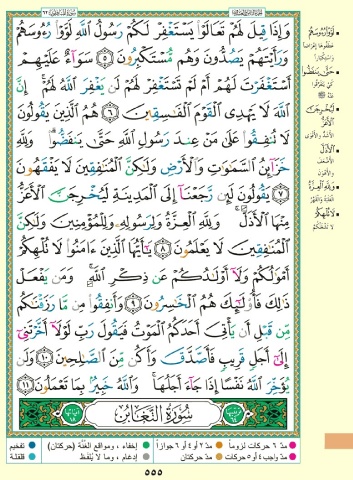 وَإِذَا قِيلَ لَهُمْ تَعَالَوْا۟ يَسْتَغْفِرْ لَكُمْ رَسُولُ ٱللَّهِ لَوَّوْا۟ رُءُوسَهُمْ
وَرَأَيْتَهُمْ يَصُدُّونَ وَهُم مُّسْتَكْبِرُونَ ٥ سَوَآءٌ عَلَيْهِمْ
أَسْتَغْفَرْتَ لَهُمْ أَمْ لَمْ تَسْتَغْفِرْ لَهُمْ لَن يَغْفِرَ ٱللَّهُ لَهُمْ ۚ إِنَّ
ٱللَّهَ لَا يَهْدِى ٱلْقَوْمَ ٱلْفَٰسِقِينَ ٦ هُمُ ٱلَّذِينَ يَقُولُونَ
لَا تُنفِقُوا۟ عَلَىٰ مَنْ عِندَ رَسُولِ ٱللَّهِ حَتَّىٰ يَنفَضُّوا۟ ۗ وَلِلَّهِ
خَزَآئِنُ ٱلسَّمَٰوَٰتِ وَٱلْأَرْضِ وَلَٰكِنَّ ٱلْمُنَٰفِقِينَ لَا يَفْقَهُونَ
٧ يَقُولُونَ لَئِن رَّجَعْنَآ إِلَى ٱلْمَدِينَةِ لَيُخْرِجَنَّ ٱلْأَعَزُّ
مِنْهَا ٱلْأَذَلَّ ۚ وَلِلَّهِ ٱلْعِزَّةُ وَلِرَسُولِهِۦ وَلِلْمُؤْمِنِينَ وَلَٰكِنَّ
ٱلْمُنَٰفِقِينَ لَا يَعْلَمُونَ ٨ يَٰٓأَيُّهَا ٱلَّذِينَ ءَامَنُوا۟ لَا تُلْهِكُمْ
أَمْوَٰلُكُمْ وَلَآ أَوْلَٰدُكُمْ عَن ذِكْرِ ٱللَّهِ ۚ وَمَن يَفْعَلْ
ذَٰلِكَ فَأُو۟لَٰٓئِكَ هُمُ ٱلْخَٰسِرُونَ ٩ وَأَنفِقُوا۟ مِن مَّا رَزَقْنَٰكُم
مِّن قَبْلِ أَن يَأْتِىَ أَحَدَكُمُ ٱلْمَوْتُ فَيَقُولَ رَبِّ لَوْلَآ أَخَّرْتَنِىٓ
إِلَىٰٓ أَجَلٍ قَرِيبٍ فَأَصَّدَّقَ وَأَكُن مِّنَ ٱلصَّٰلِحِينَ ١٠ وَلَن
يُؤَخِّرَ ٱللَّهُ نَفْسًا إِذَا جَآءَ أَجَلُهَا ۚ وَٱللَّهُ خَبِيرٌۢ بِمَا تَعْمَلُونَ ١١
سُورَةُ التَّغَابُنِ
لَوَّوْا رُءُوسَهُمْ
حَتَّىٰ يَنفَضُّوا
لَيُخْرِجَنَّ
الْأَعَزُّ
الْأَذَلَّ
وَلِلَّهِ الْعِزَّةُ
لَا تُلْهِكُمْ
مدّ ٦ حركات لزوماً مدّ ٢ أو ٤ أو ٦ جوازاً إخفاء، ومواقع الغُنَّة (حركتان) تفخيم
مدّ واجب ٤ أو ٥ حركات مدّ حركتان إدغام، وما لا يُلفَظ قلقلة
٥٥٥